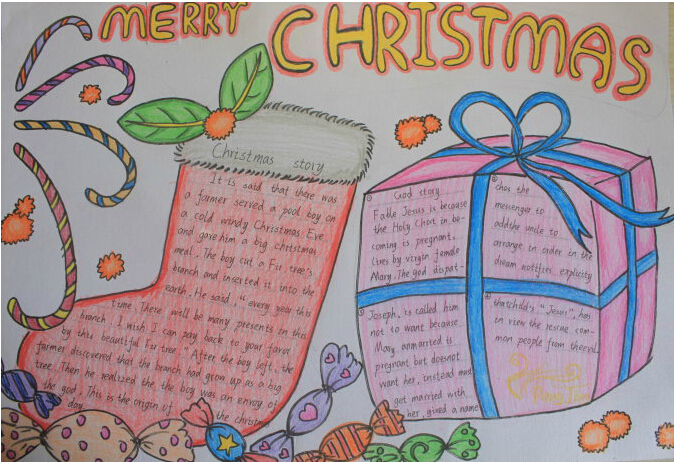 MERRY CHRISTMAS
Christmas story
It is said that there was
a farmer served a pool boy on
a cold windy Christmas Eve
and gave him a big christmas
meal. The boy cut a Fir tree's
branch and inserted it into the
earth. He said, "every year this
time. There will be many presents in this
branch. I wish I can pay back to your favor
by this beautiful Fir tree." After the boy left, the
farmer discovered that the branch had grow up as a big
tree. Then he realized the the boy was an envoy of
the god. This is the origin of the christmas
day
① God story
Fable Jesus is because
the Holy Ghost in be-
coming is pregnant.
lives by virgin female
Mary. The god dispat-
② ches the
messenger to
add the unite to
arrange in order in the
dream notifies explicity
③ Joseph, is called him
not to want because
Mary unmarried is
pregnant but doesnot
want her, instead must
get married with
her, gived a name
④ thatchild's "Jesus", has
in view the rescue com-
mon people from the evil.